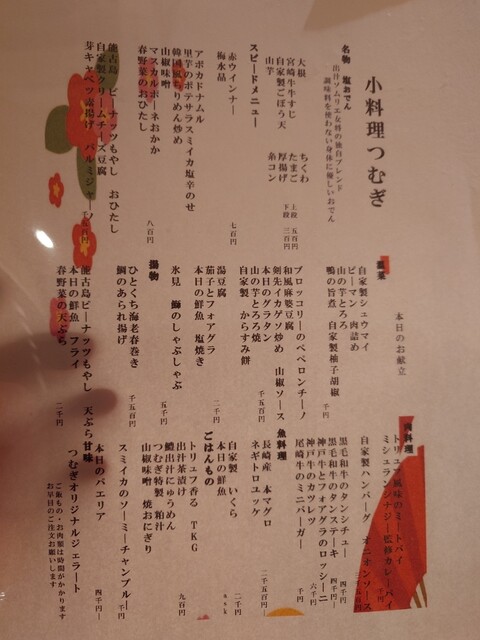 小料理つむぎ
名物 塩おでん
出汁ソムリエ女将の独自ブレンド
調味料を使わない身体に優しいおでん
大根 ちくわ
宮崎牛牛すじ たまご
自家製ごぼう天 厚揚げ
山芋 糸コン
上段 五百円
下段 三百円
スピードメニュー
赤ウインナー
梅水晶
七百円
アボカドナムル
里芋のポテサラスミイカ塩辛のせ
韓国風ちりめん炒め
山椒味噌
マスカルポーネおかか
春野菜のおひたし
八百円
能古島 ピーナッツもやし おひたし
自家製クリームチーズ豆腐
芽キャベツ素揚げ パルミジャーノ
本日のお献立
自家製シュウマイ
ピーマン 肉詰め
山の芋とろろ
鴨の旨煮 自家製柚子胡椒
千円
ブロッコリーのペペロンチーノ
和風麻婆豆腐
剣先イカゲソ炒め 山椒ソース
本日のグラタン
山の芋とろろ焼
自家製 からすみ餅
千五百円
湯豆腐
茄子とフォアグラ
本日の鮮魚 塩焼き
二千円
氷見 鰤のしゃぶしゃぶ
五千円
揚物
ひとくち海老春巻き
鯛のあられ揚げ
千五百円
能古島ピーナッツもやし 天ぷら
本日の鮮魚 フライ
春野菜の天ぷら
二千円
肉料理
トリュフ風味のミートパイ
ミシュランシナジー監修カレーパイ
自家製ハンバーグ オニオンソース
黒毛和牛のタンシチュー
四千円
黒毛和牛のタンステーキ
四千円
神戸牛とフォアグラのロッシーニ
神戸牛のカツレツ
六千円
尾崎牛のミニバーガー
千円
魚料理
長崎産 本マグロ
ネギトロユッケ
二千五百円
自家製 いくら
二千円
ごはんもの
ask
トリュフ香る TKG
出汁茶漬け
鱧出汁にゅうめん
つむぎ特製 粕汁
山椒味噌 焼おにぎり
九百円
スミイカのソーミーチャンプルー
千円
本日のパエリア
四千円
甘味
つむぎオリジナルジェラート
ご飯もの・お肉類は時間がかかります
お早目のご注文お願いします